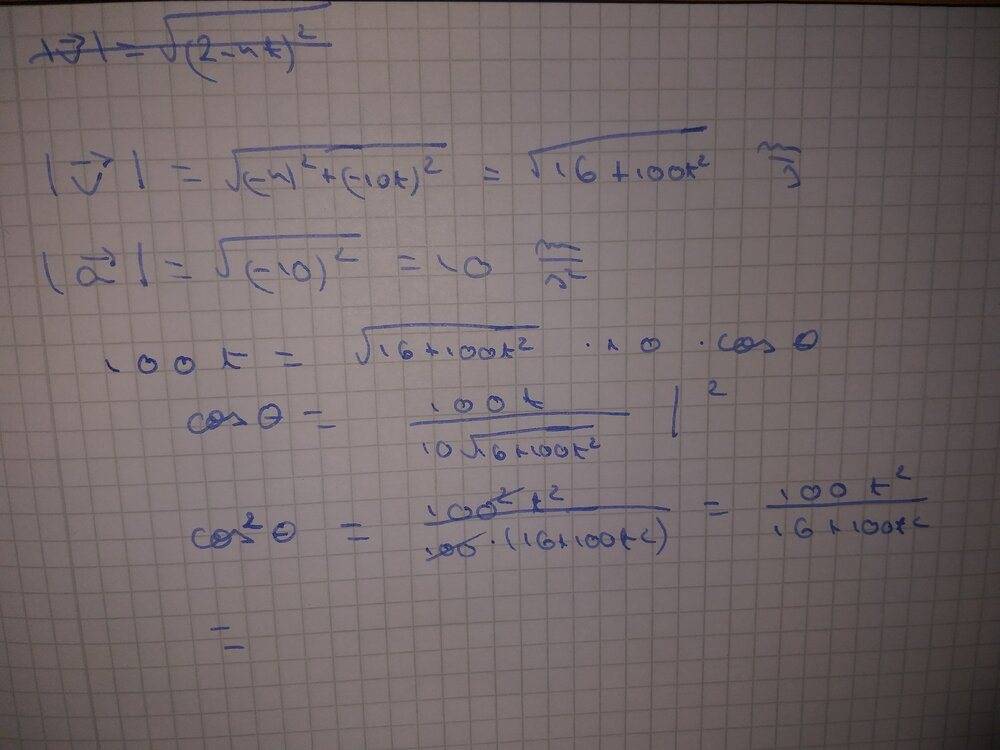 |v⃗| = √(2-4t)²
|v⃗| = √(-4)²+(-10t)² = √16+100t² m/s
|a⃗| = √(-10)² = 10 m/s²
100t = √16+100t² · 10 · cos θ
cos θ = 100t / 10√16+100t² |²
cos² θ = 100² t² / 100·(16+100t²) = 100t² / 16+100t²
=